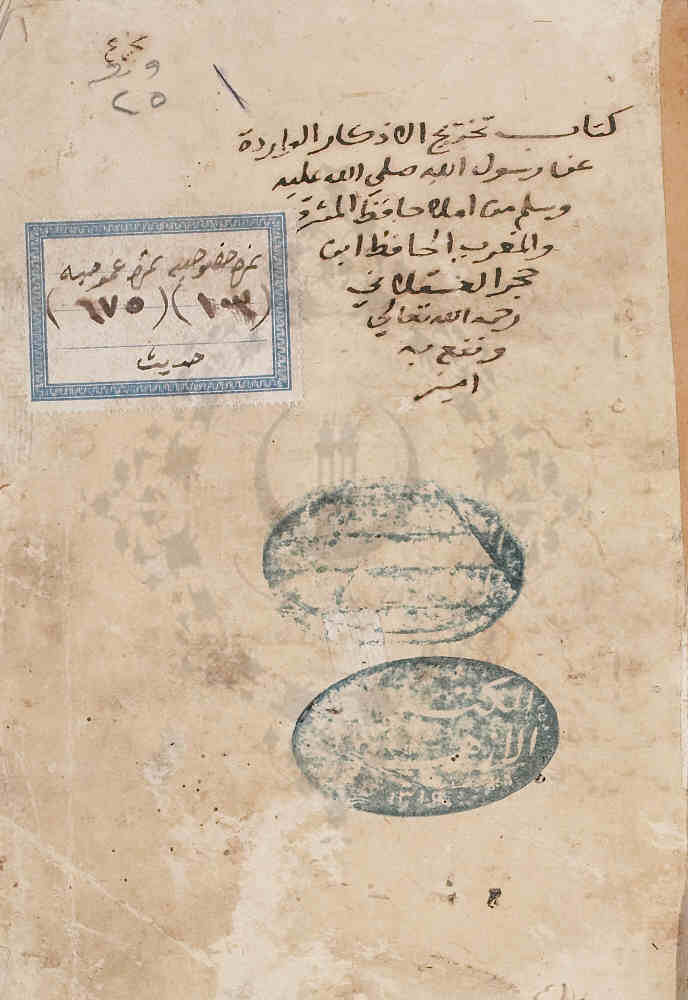 كتاب تخريج الاذكار الواردة
عن رسول الله صلي الله عليه
وسلم من املاء حافظ المشرق
والمغرب الحافظ ابن
حجر العسقلاني
رحمه الله تعالي
ونفع به
امين
نمرة خصوصيه نمرة عموميه
(١٠٣) (٦٧٥)
حديث
٢٥